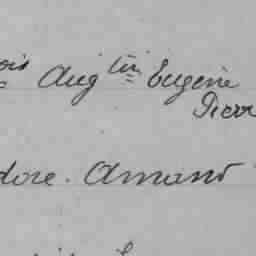 ois Aug tin Eugène
Pierr
dore. Amand